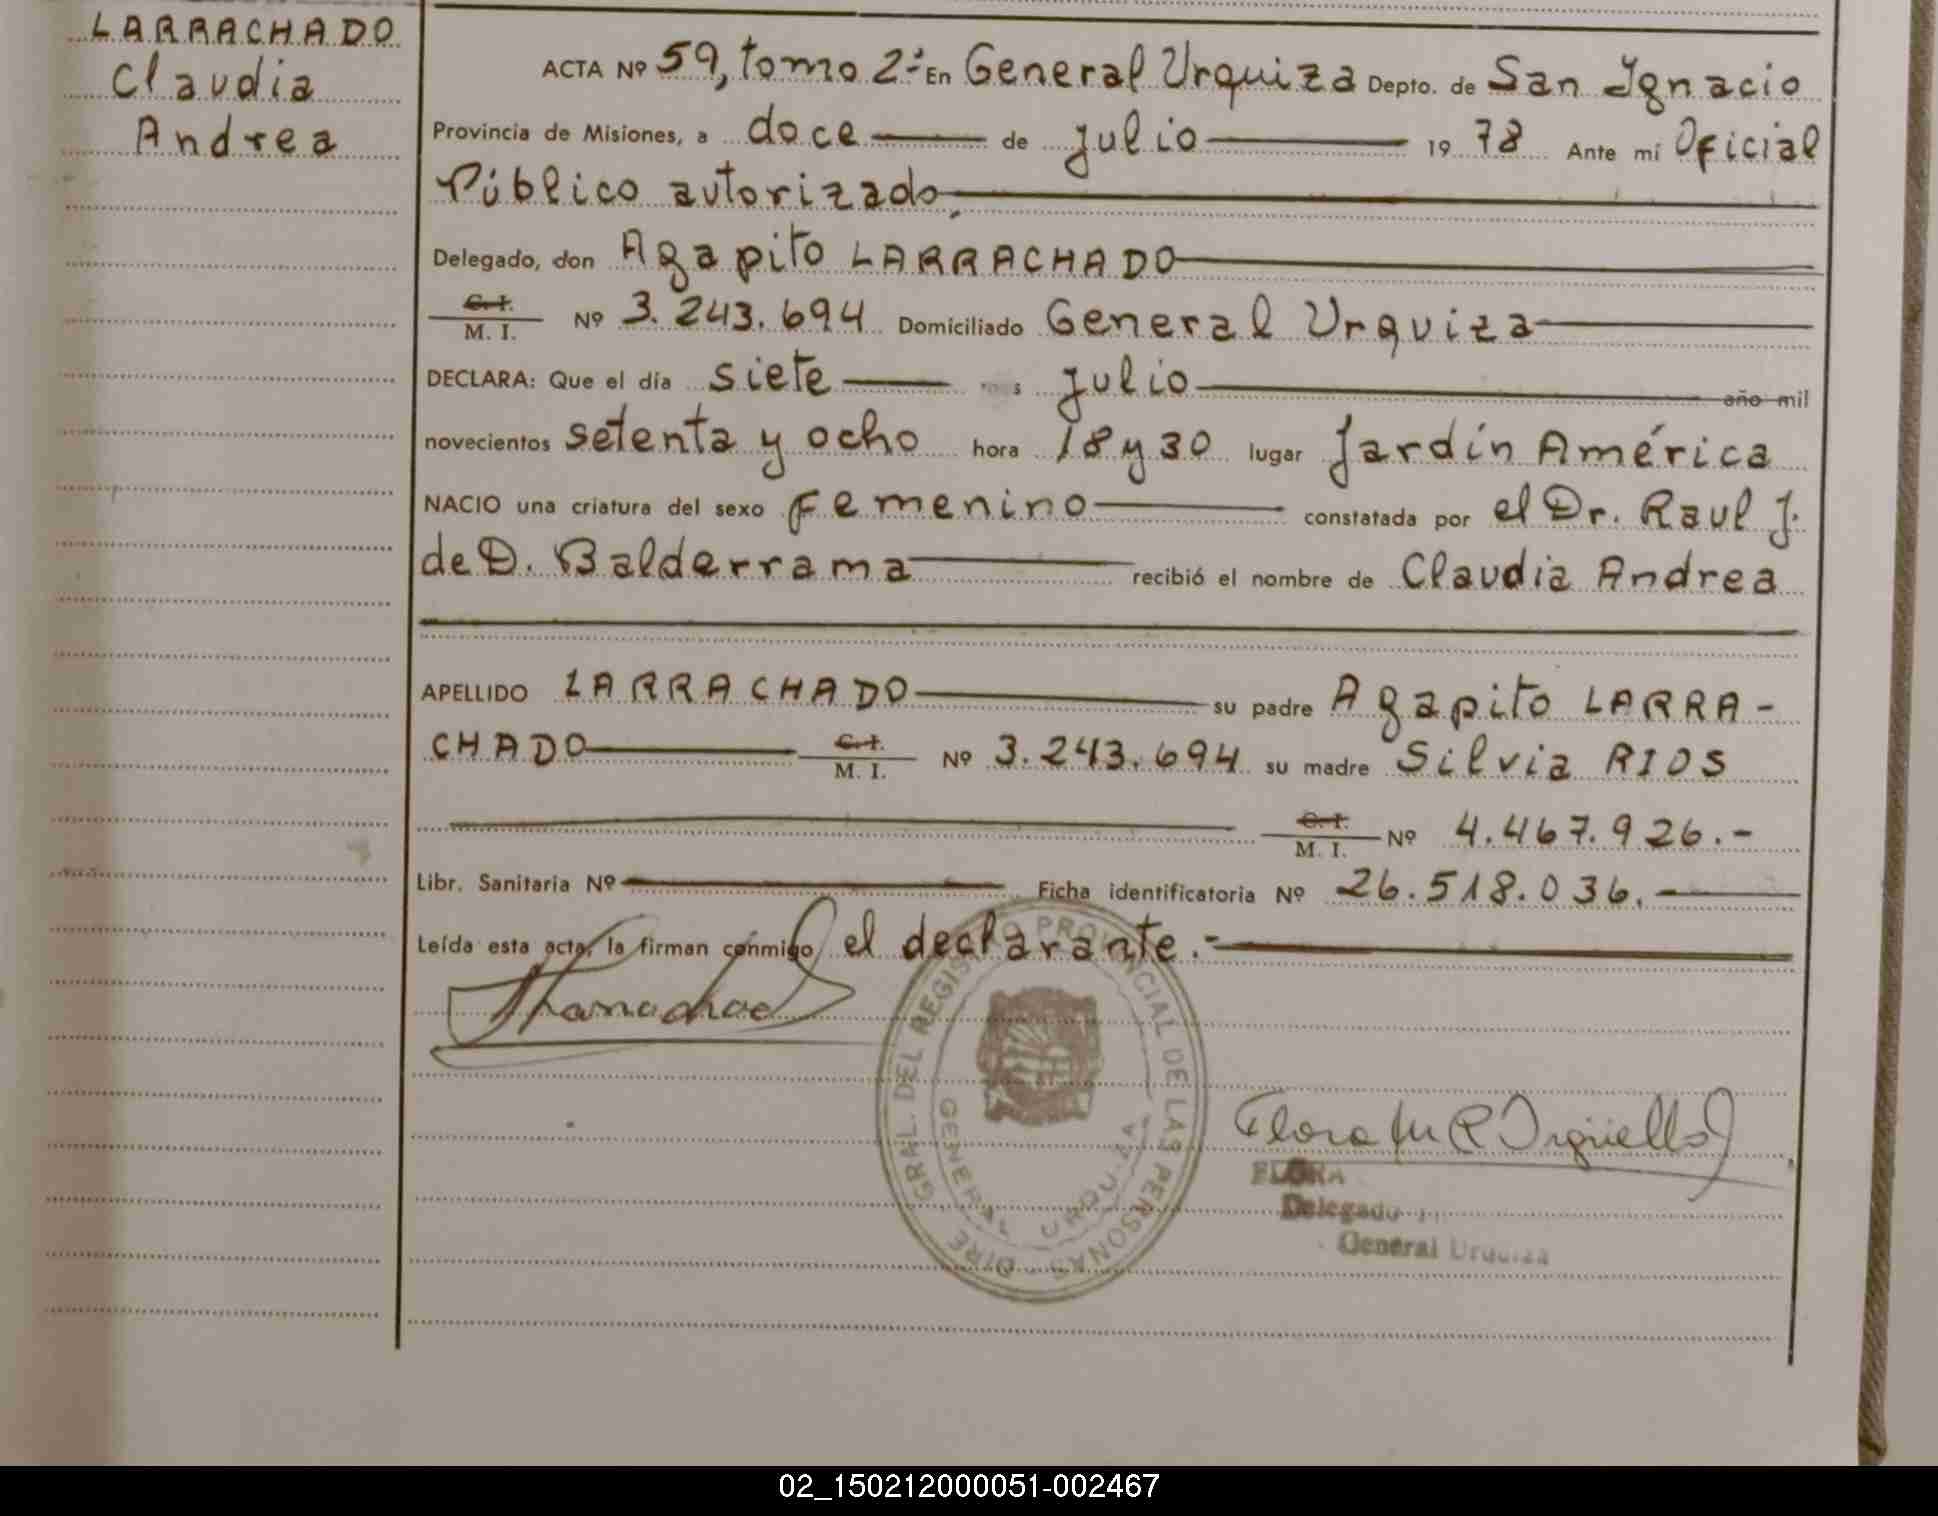 LARRACHADO
Claudia
Andrea
ACTA Nº 59, tomo 2º- En General Urquiza Depto. de San Ignacio
Provincia de Misiones, a doce de julio 19 78 Ante mí Oficial
Público autorizado,
Delegado, don Agapito LARRACHADO
C. I.
M. I. Nº 3.243.694 Domiciliado General Urquiza
DECLARA: Que el día siete julio año mil
novecientos setenta y ocho hora 18 y 30 lugar Jardín América
NACIO una criatura del sexo Femenino constatada por el Dr. Raul J.
de D. Balderrama recibió el nombre de Claudia Andrea
APELLIDO LARRACHADO su padre Agapito LARRA-
CHADO C. I.
M. I. Nº 3.243.694 su madre Silvia RIOS
C. I.
M. I. Nº 4.467.926.-
Libr. Sanitaria Nº Ficha identificatoria Nº 26.518.036.
Leída esta acta, la firman conmigo el declarante.-
DIRE GRAL. DEL REGISTRO PROVINCIAL DE LAS PERSONAS
GENERAL URQUIZA
Flora
FLORA
Delegado
General Urquiza
02_150212000051-002467